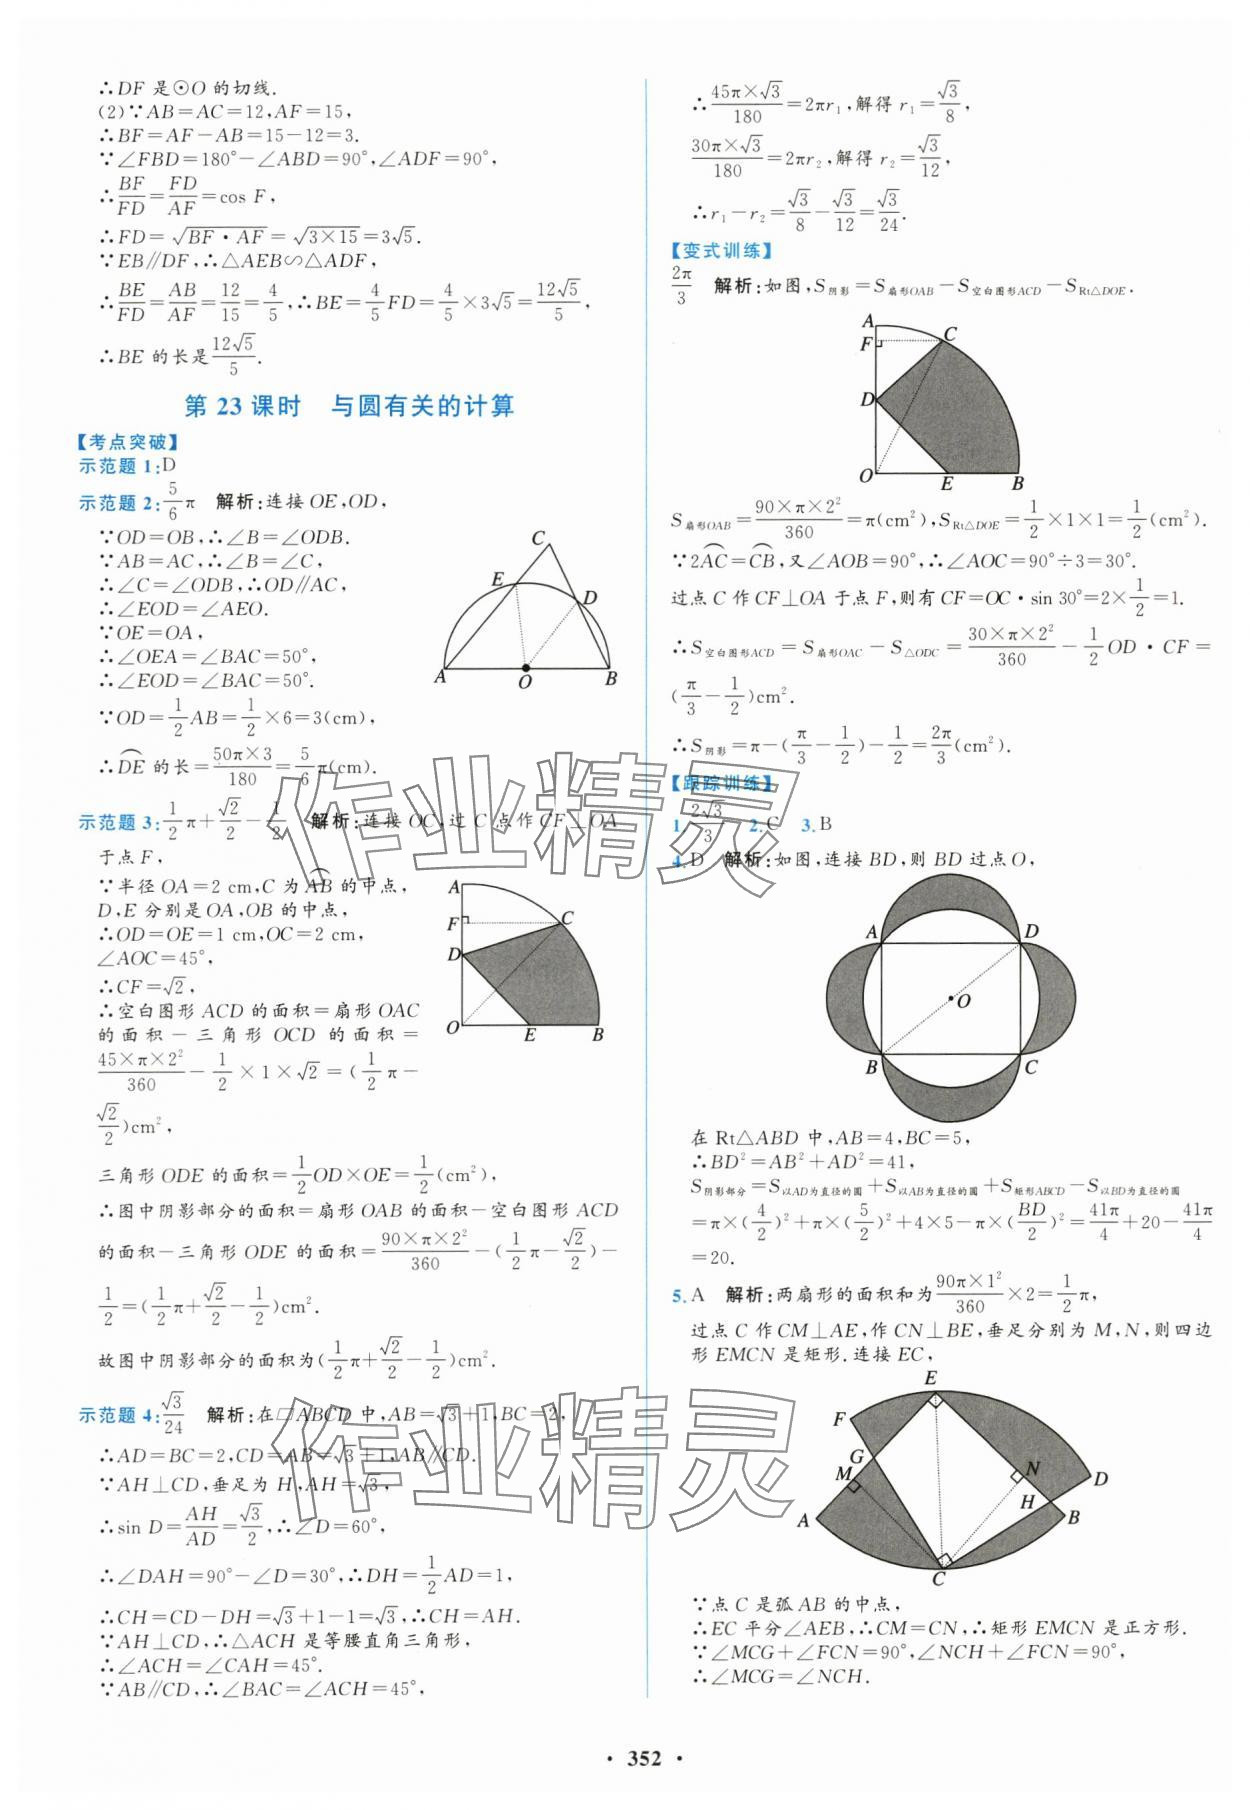 ∴DF 是⊙O 的切线.
(2)∵AB=AC=12,AF=15,
∴BF=AF-AB=15-12=3.
∵∠FBD=180°-∠ABD=90°,∠ADF=90°,
∴BF/FD=FD/AF=cos F,
∴FD=√(BF·AF)=√(3×15)=3√5.
∵EB∥DF,∴△AEB∽△ADF,
∴BE/FD=AB/AF=12/15=4/5,∴BE=4/5FD=4/5×3√5=12√5/5,
∴BE 的长是12√5/5.
第 23 课时 与圆有关的计算
【考点突破】
示范题 1:D
示范题 2:5/6π 解析:连接 OE,OD,
∵OD=OB,∴∠B=∠ODB.
∵AB=AC,∴∠B=∠C,
∴∠C=∠ODB,∴OD∥AC,
∴∠EOD=∠AEO.
∵OE=OA,
∴∠OEA=∠BAC=50°,
∴∠EOD=∠BAC=50°.
∵OD=1/2AB=1/2×6=3(cm),
∴⌒DE 的长=50π×3/180=5/6π(cm).
C
E
D
A
O
B
示范题 3:1/2π+√2/2-1/2 解析:连接 OC,过 C 点作 CF⊥OA
于点 F,
∵半径 OA=2 cm,C 为⌒AB 的中点,
D,E 分别是 OA,OB 的中点,
∴OD=OE=1 cm,OC=2 cm,
∠AOC=45°,
∴CF=√2,
∴空白图形 ACD 的面积=扇形 OAC
的面积-三角形 OCD 的面积=
45×π×2²/360-1/2×1×√2=(1/2π-
√2/2)cm²,
A
F
C
D
O
E
B
三角形 ODE 的面积=1/2OD×OE=1/2(cm²),
∴图中阴影部分的面积=扇形 OAB 的面积-空白图形 ACD
的面积-三角形 ODE 的面积=90×π×2²/360-(1/2π-√2/2)-
1/2=(1/2π+√2/2-1/2)cm².
故图中阴影部分的面积为(1/2π+√2/2-1/2)cm².
示范题 4:√3/24 解析:在▱ABCD 中,AB=√3+1,BC=2,
∴AD=BC=2,CD=AB=√3+1,AB∥CD.
∵AH⊥CD,垂足为 H,AH=√3,
∴sin D=AH/AD=√3/2,∴∠D=60°,
∴∠DAH=90°-∠D=30°,∴DH=1/2AD=1,
∴CH=CD-DH=√3+1-1=√3,∴CH=AH.
∵AH⊥CD,∴△ACH 是等腰直角三角形,
∴∠ACH=∠CAH=45°.
∵AB∥CD,∴∠BAC=∠ACH=45°,
∴45π×√3/180=2πr₁,解得 r₁=√3/8,
30π×√3/180=2πr₂,解得 r₂=√3/12,
∴r₁-r₂=√3/8-√3/12=√3/24.
【变式训练】
2π/3 解析:如图,S阴影=S扇形OAB-S空白图形ACD-SRt△DOE.
A
F
C
D
O
E
B
S扇形OAB=90×π×2²/360=π(cm²),SRt△DOE=1/2×1×1=1/2(cm²).
∵2⌒AC=⌒CB,又∠AOB=90°,∴∠AOC=90°÷3=30°.
过点 C 作 CF⊥OA 于点 F,则有 CF=OC·sin 30°=2×1/2=1.
∴S空白图形ACD=S扇形OAC-S△ODC=30×π×2²/360-1/2OD·CF=
(π/3-1/2)cm².
∴S阴影=π-(π/3-1/2)-1/2=2π/3(cm²).
【跟踪训练】
1.2√3/3 2.C 3.B
4.D 解析:如图,连接 BD,则 BD 过点 O,
A
D
O
B
C
在 Rt△ABD 中,AB=4,BC=5,
∴BD²=AB²+AD²=41,
S阴影部分=S以AD为直径的圆+S以AB为直径的圆+S矩形ABCD-S以BD为直径的圆
=π×(4/2)²+π×(5/2)²+4×5-π×(BD/2)²=41π/4+20-41π/4
=20.
5.A 解析:两扇形的面积和为90π×1²/360×2=1/2π,
过点 C 作 CM⊥AE,作 CN⊥BE,垂足分别为 M,N,则四边
形 EMCN 是矩形.连接 EC,
E
F
G
M
N
D
H
B
A
C
∵点 C 是弧 AB 的中点,
∴EC 平分∠AEB,∴CM=CN,∴矩形 EMCN 是正方形.
∵∠MCG+∠FCN=90°,∠NCH+∠FCN=90°,
∴∠MCG=∠NCH.
作业精灵
作业精灵
· 352 ·